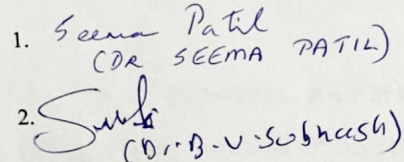 1. Seema Patil
(DR SEEMA PATIL)
2.
(Dr. B. V. Subhash)